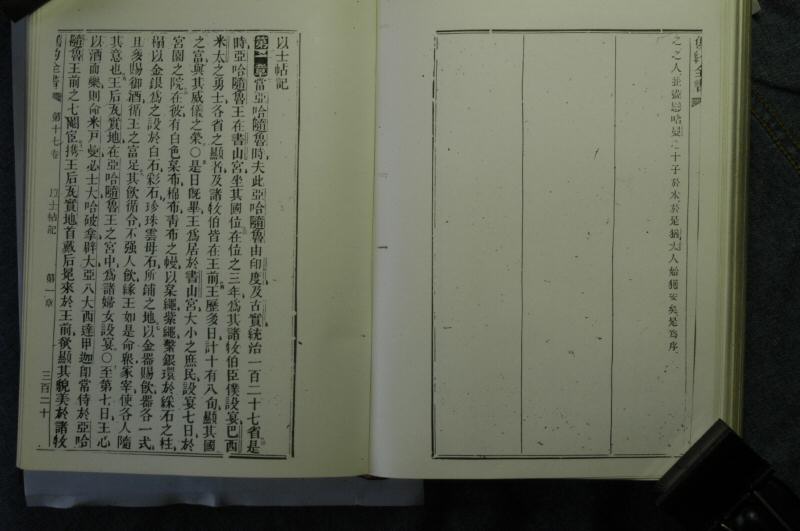 舊約全書
之之人並
十子於木於是猶太人始獲安矣是爲序
以士帖記
第一章當亞哈隨魯時夫此亞哈隨魯由印度及古實統治一百二十七省是
時亞哈隨魯王在書山宮坐其國位在位之三年爲其諸牧伯臣僕設宴巴西
米太之勇士各省之顯者及諸牧伯皆在王前王歷多日計十有八旬顯其國
之富與其威儀之榮〇是日旣畢王爲居於書山宮大小之庶民設宴七日於
宮園之院在彼有白色枲布棉布靑布之幔以枲繩紫繩繫銀環於綵石之柱
榻以金銀爲之設於白石彩石珍珠雲母石所鋪之地以金器賜飮器各一式
且多賜御酒循王之富足其飮循令不强人飮緣王如是命衆冡宰使各人隨
其意也王后瓦實地在亞哈隨魯王之宮中爲諸婦女設宴〇至第七日王心
以酒而樂則命米戸曼必士大哈破拿辟大亞八大西達甲迦卽常侍於亞哈
隨魯王前之七閹宦携王后瓦實地首戴后冕來於王前欲顯其貌美於諸牧
舊約全書 第十七卷 以士帖記 第一章 三百二十